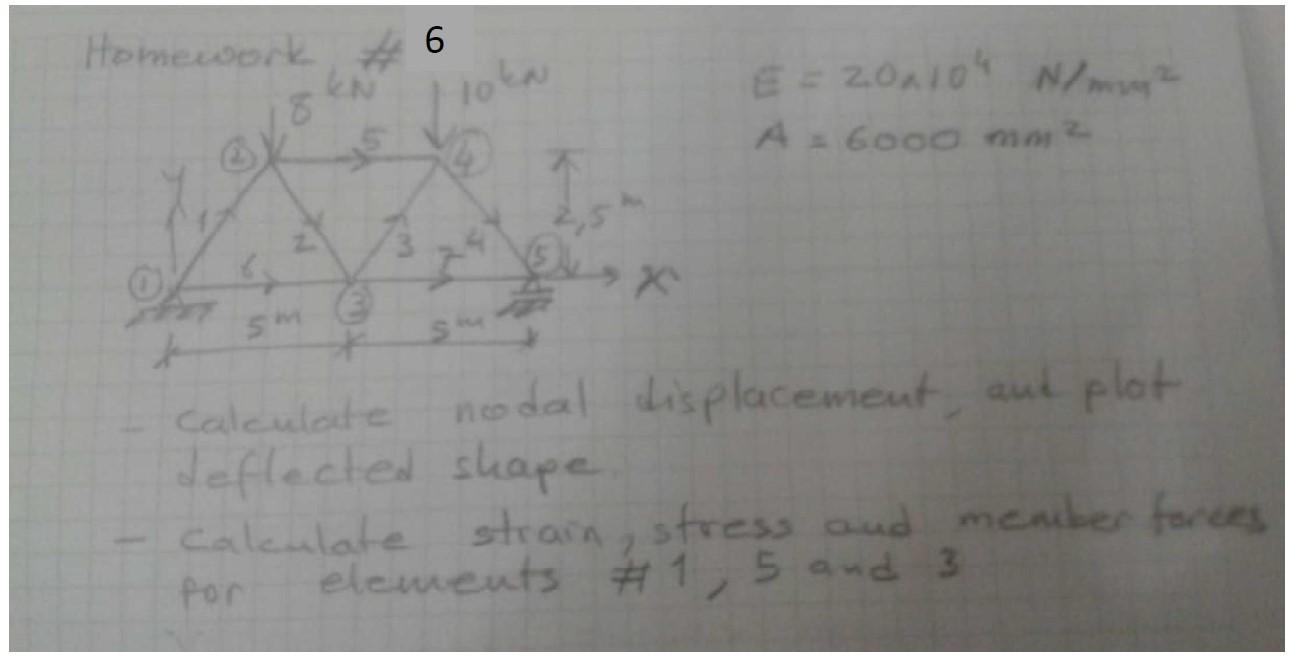 Homework # 6
8 kN
10 kN
E = 20x10⁴ N/mm²
A = 6000 mm²
2
5
4
Y
1
2
3
4
2,5 m
1
6
3
7
5
X
5 m
5 m
- Calculate nodal displacement, and plot
deflected shape.
- Calculate strain, stress and member forces
for elements #1, 5 and 3